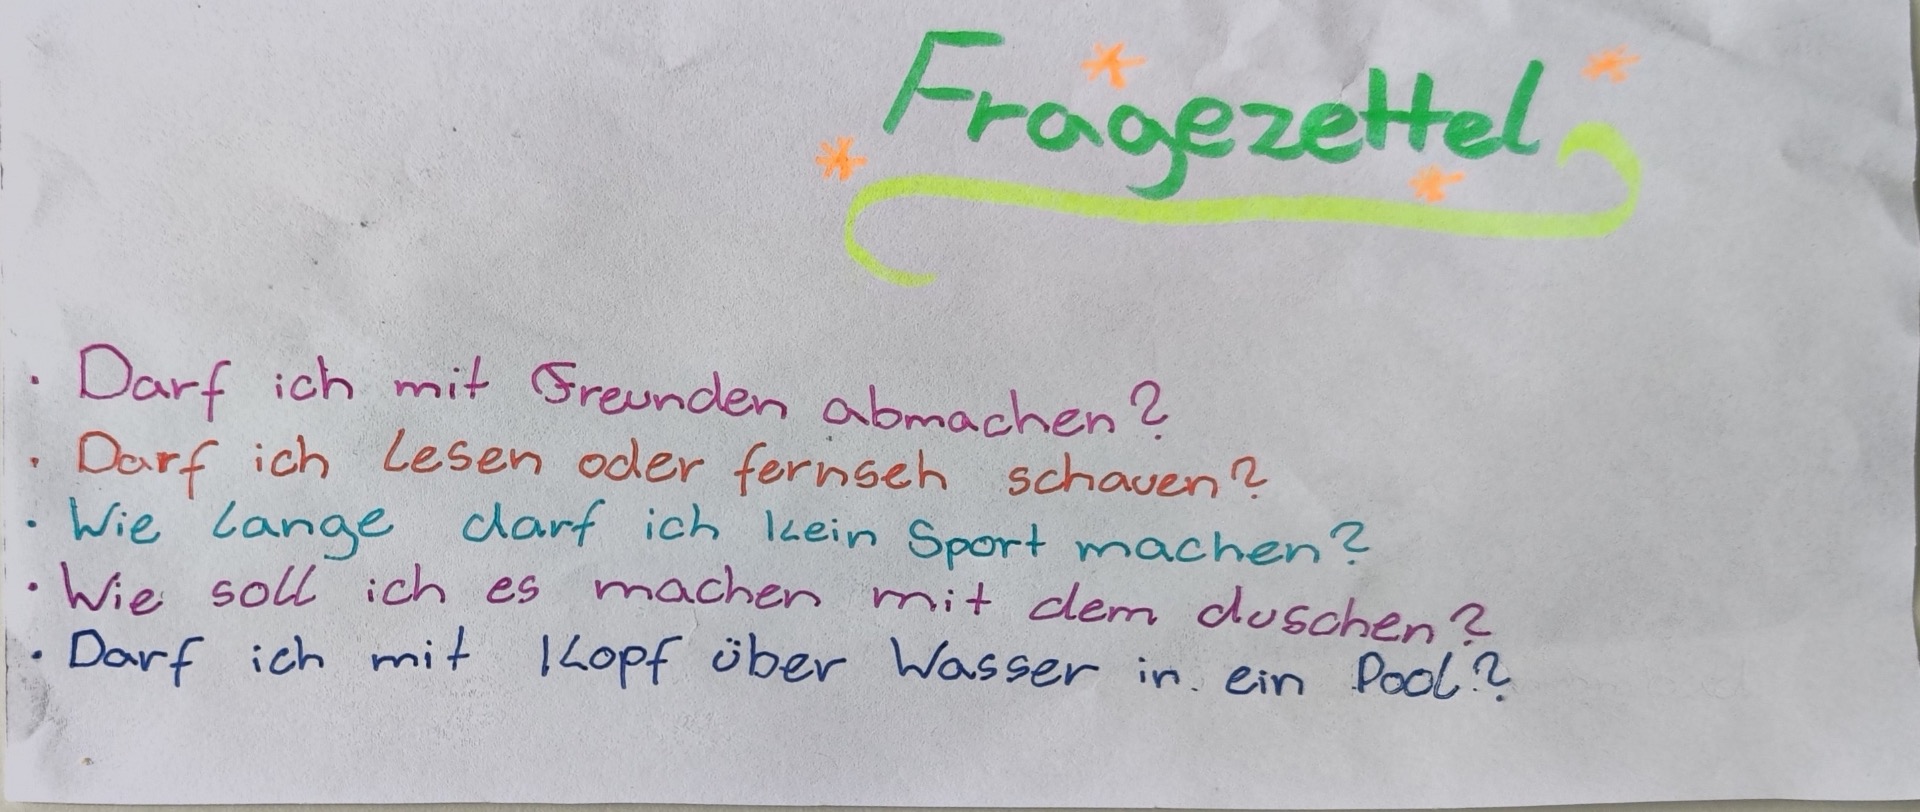 Fragezettel
· Darf ich mit Freunden abmachen?
· Darf ich Lesen oder fernseh schauen?
· Wie lange darf ich kein Sport machen?
· Wie soll ich es machen mit dem duschen?
· Darf ich mit Kopf über Wasser in ein Pool?